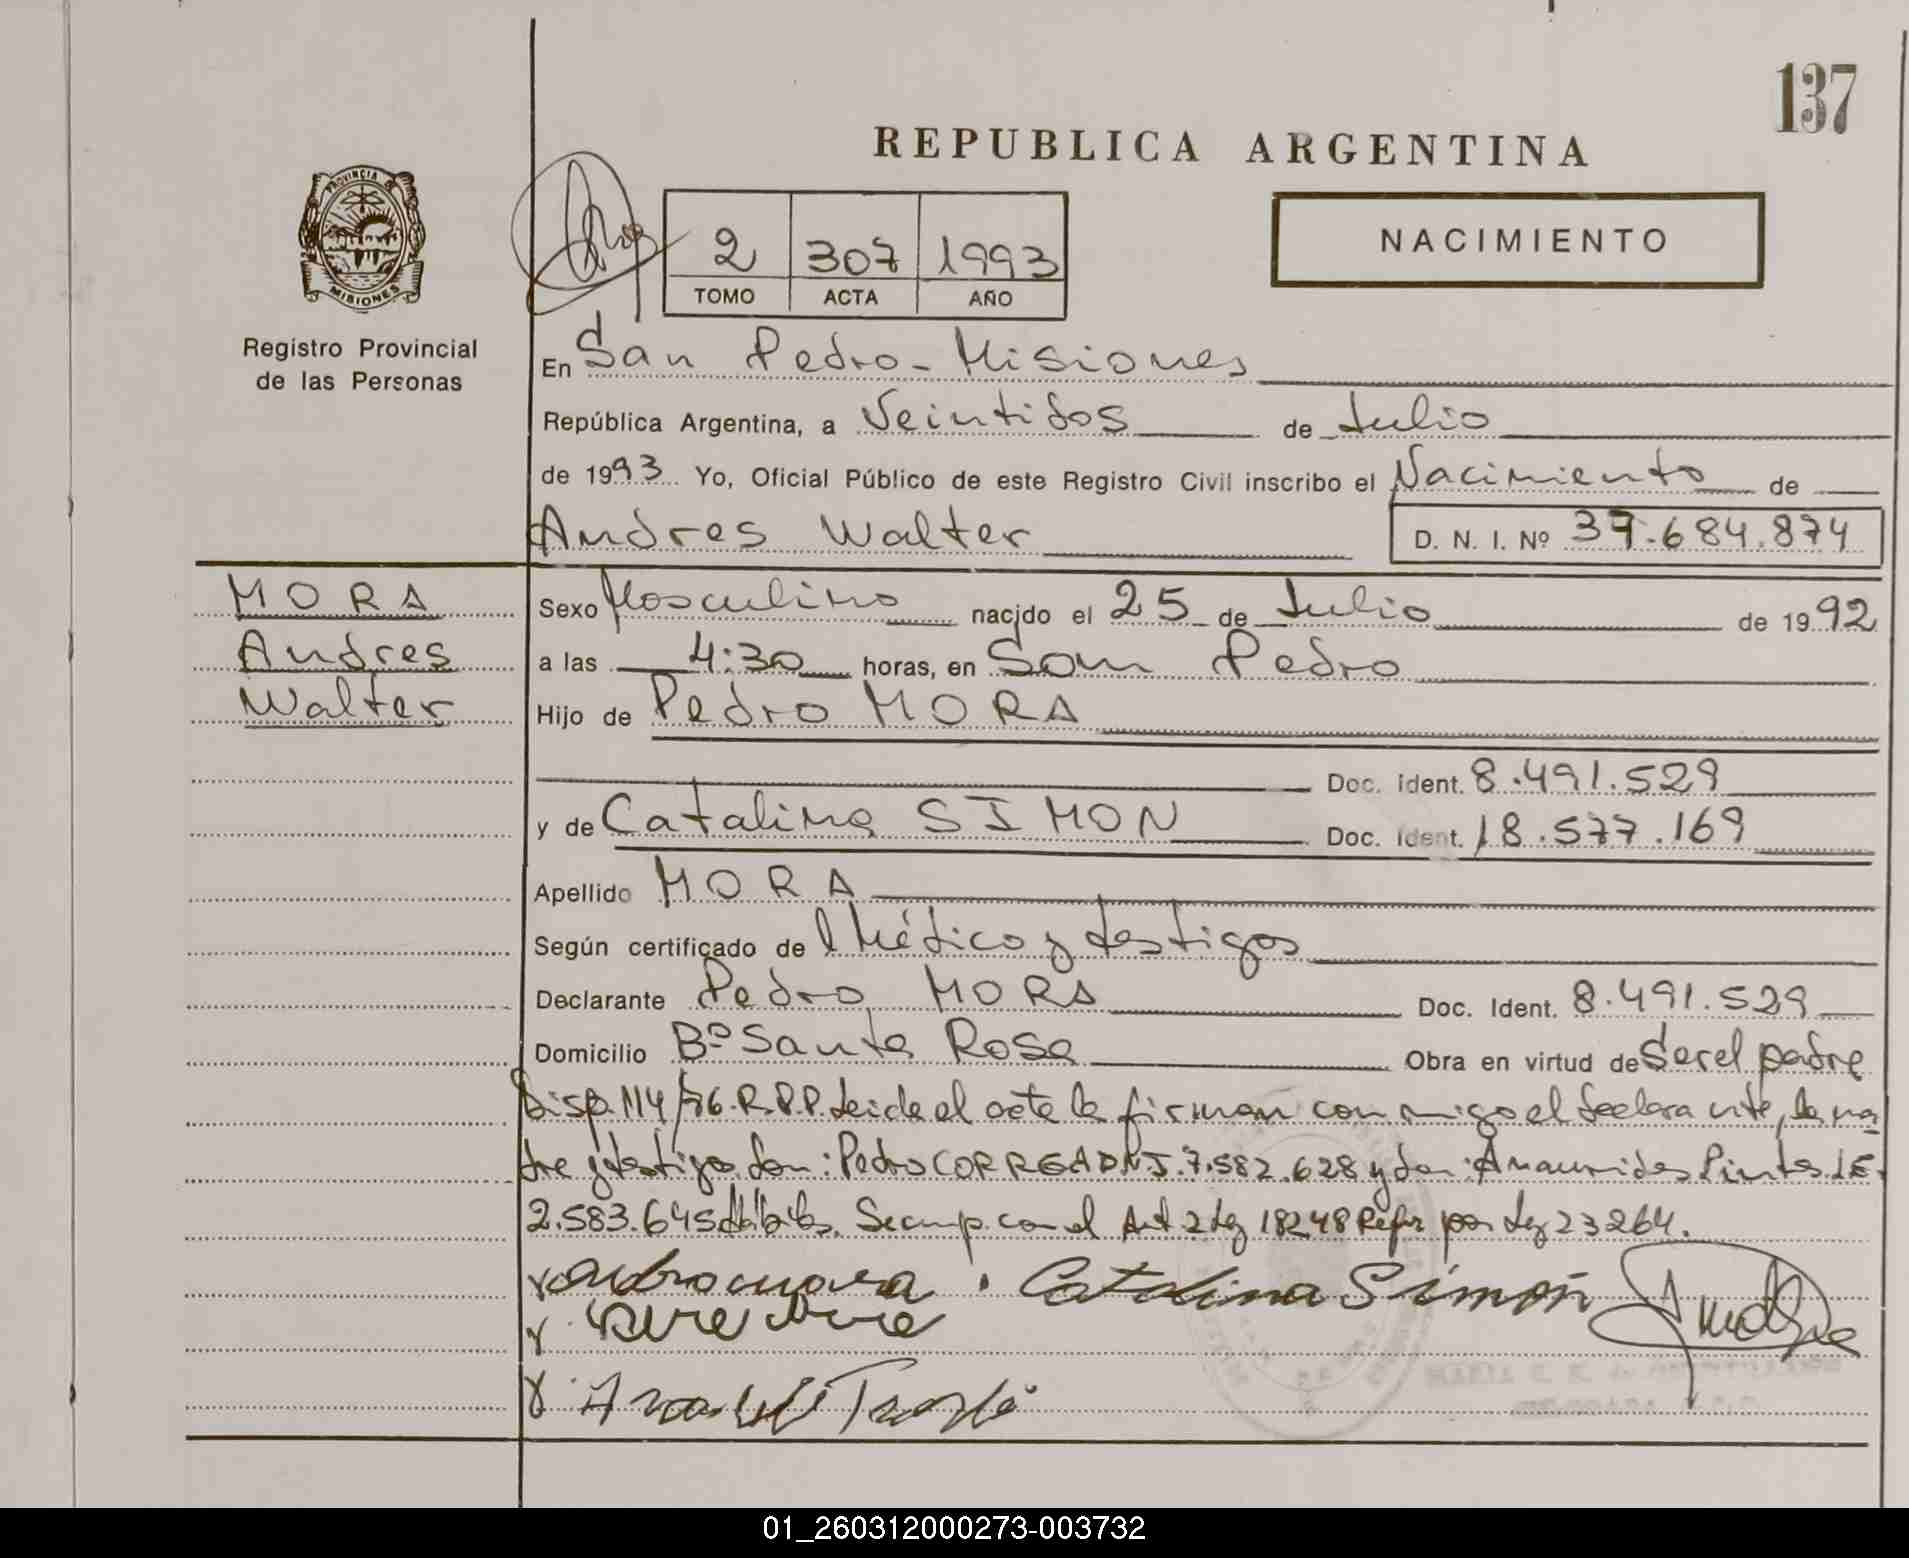 137
REPUBLICA ARGENTINA
PROVINCIA
MISIONES
2 307 1993
TOMO ACTA AÑO
NACIMIENTO
Registro Provincial
de las Personas
En San Pedro - Misiones
República Argentina, a Veintidos de Julio
de 1993 Yo, Oficial Público de este Registro Civil inscribo el Nacimiento de
Andres Walter D. N. I. Nº 37.684.874
MORA
Andres
Walter
Sexo Masculino nacido el 25 de Julio de 1992
a las 4:30 horas, en San Pedro
Hijo de Pedro MORA
Doc. Ident. 8.491.529
y de Catalina SIMON Doc. Ident. 18.577.169
Apellido MORA
Según certificado de l Médico y testigos
Declarante Pedro MORA Doc. Ident. 8.491.529
Domicilio Bº Santa Rosa Obra en virtud de Ser el padre
Disp. 114/76. R.P.P. Leida el acta la firman conmigo el declarante, la ma
dre y testigos don: Pedro CORREA D.N.I. 7.582.628 y don: Amaurides Pintos L.E.
2.583.645 hábiles. Se cump. con el Art 2 Ley 18248 Refor por Ley 23264.
Catalina Simón
01_260312000273-003732